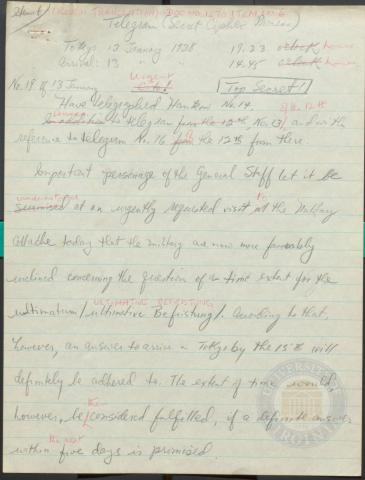 (ROUGH TRANSLATION) DOC NO. 1270 ITEM NO. 6
Telegram (Secret Cipher Process)
Tokyo 13 January 1938 19.23 o'clock hours
Arrival: 13 " " 14.45 o'clock hours
Urgent
No. 19 of 13 January Top Secret!
Have telegraphed Hankow No. 14. of the 12th
to telegram from the 12th, No. 13, and in the
reference to telegram No. 16 from the 12th from there
Important personage of the General Staff let it be
surmised at an urgently requested visit at the Military
to
Attache today that the military are now more favorably
inclined concerning the question of a time extent for the
ULTIMATIVE BEFRISTUNG
ultimatum /ultimative Befristung/. According to that,
however, an answer to arrive in Tokyo by the 15th will
definitely be adhered to. The extent of time would,
however, be considered fulfilled, if a definite answer
the next
within five days is promised.
UNIVERSITY